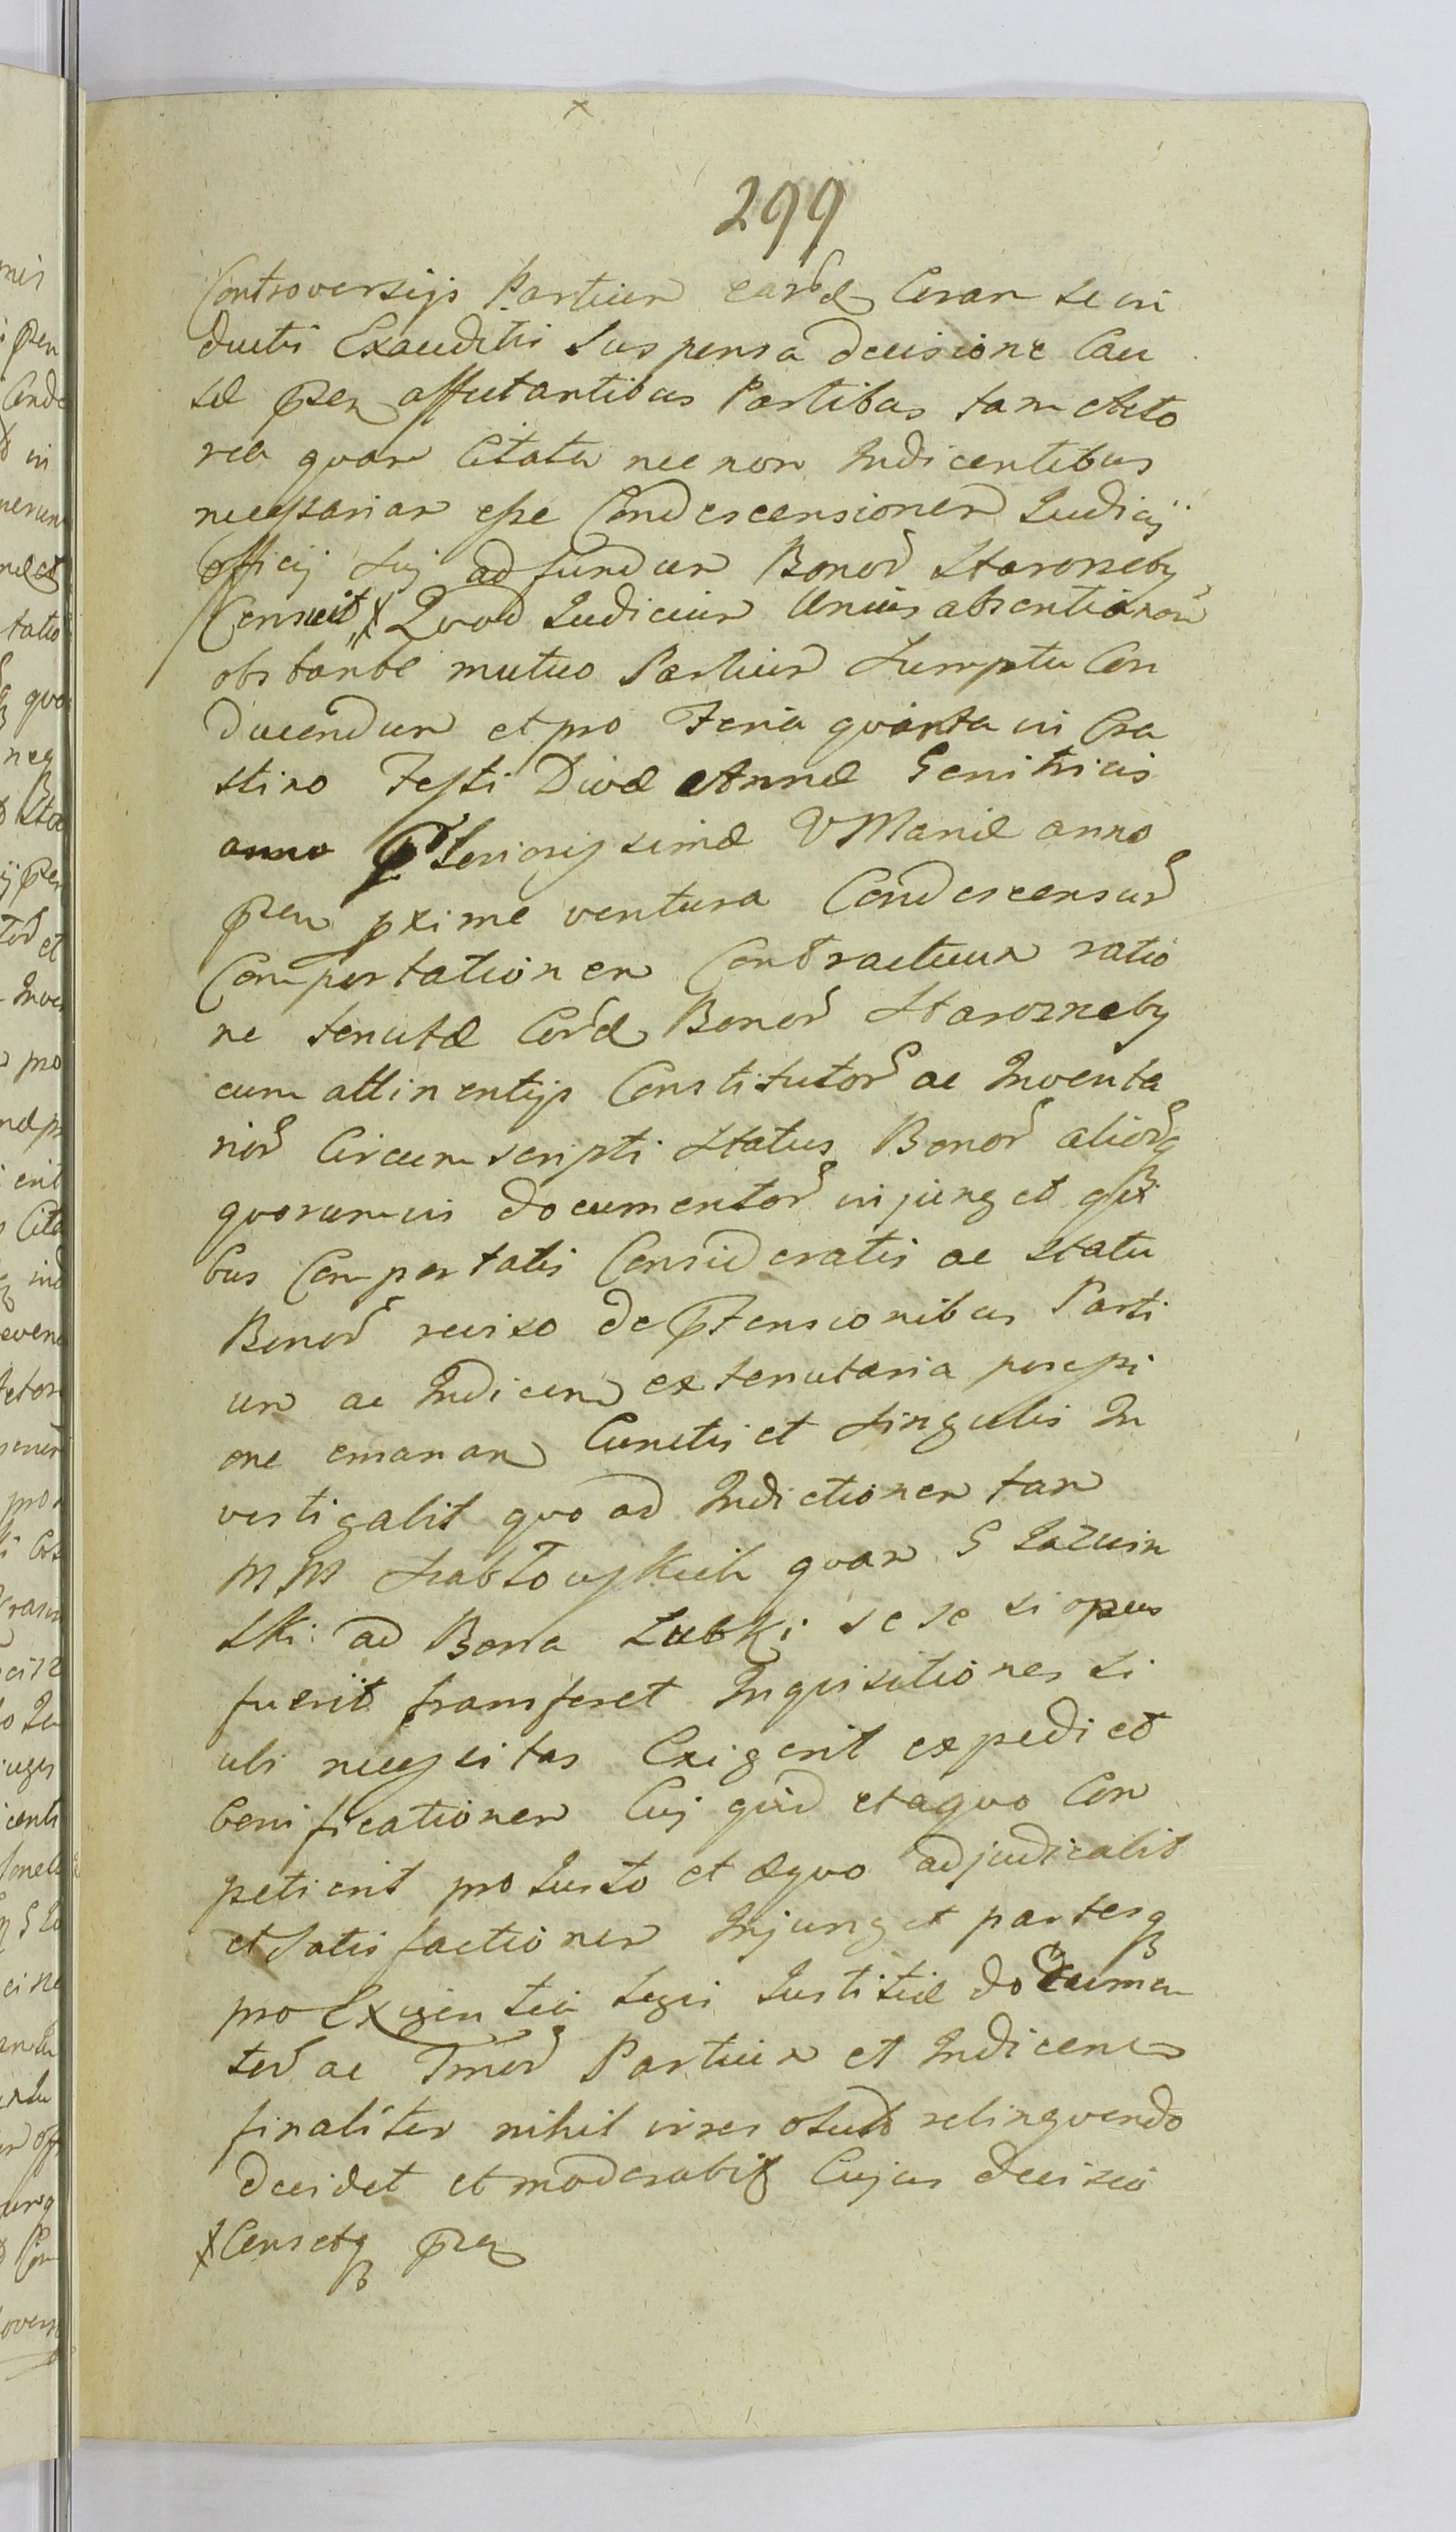 299
Controversijs Partium eard Coram se in
ductis Exauditis Suspensa decisione Cau
sæ pñ affectantibus Partibus tam Acto
rea quam Citata nec non Indicentibus
necessariam esse Condescensionem Judicij
officij sui ad fundum Bonor Starozreby
Censuit x Quod Judicium Unius absentia non
obstante mutuo Partium Sumptu Con
ducendum et pro Feria quinta in Cra
stino Festi Divæ Annæ Genitricis
anno Gloriosissimæ V Mariæ anno
pñ pxime ventura Condescensur
Comportationem Contractuum ratio
ne tenutæ Cord Bonor Starozreby
cum attinentijs Constitutor ac Inventa
rior Circumscripti Status Bonor aliorq
quorumvis documentor injunget qui
bus Comportatis Consideratis ac Statu
Bonor reviso de Ptensionibus Parti
um ac Indicen ex tenutaria possessi
one emanan Cunctis et Singulis In
vestigabit quo ad Indictionem tam
MM quam G Lazuin
ski ad Bona Lubki sese si opus
fuerit transferet Inquisitiones si
ubi necessitas Exigerit expediet
bonificationem Cuj quid et a quo Com
petierit pro Justo et æquo adjudicabit
et Satisfactionem Injunget partesq
pro Exigentia Legis Justitiæ documen
tor ac Tmor Partium et Indicen
finaliter nihil irresolutu relinquendo
decidet et moderabit Cujus decisio
x Censetq pñ